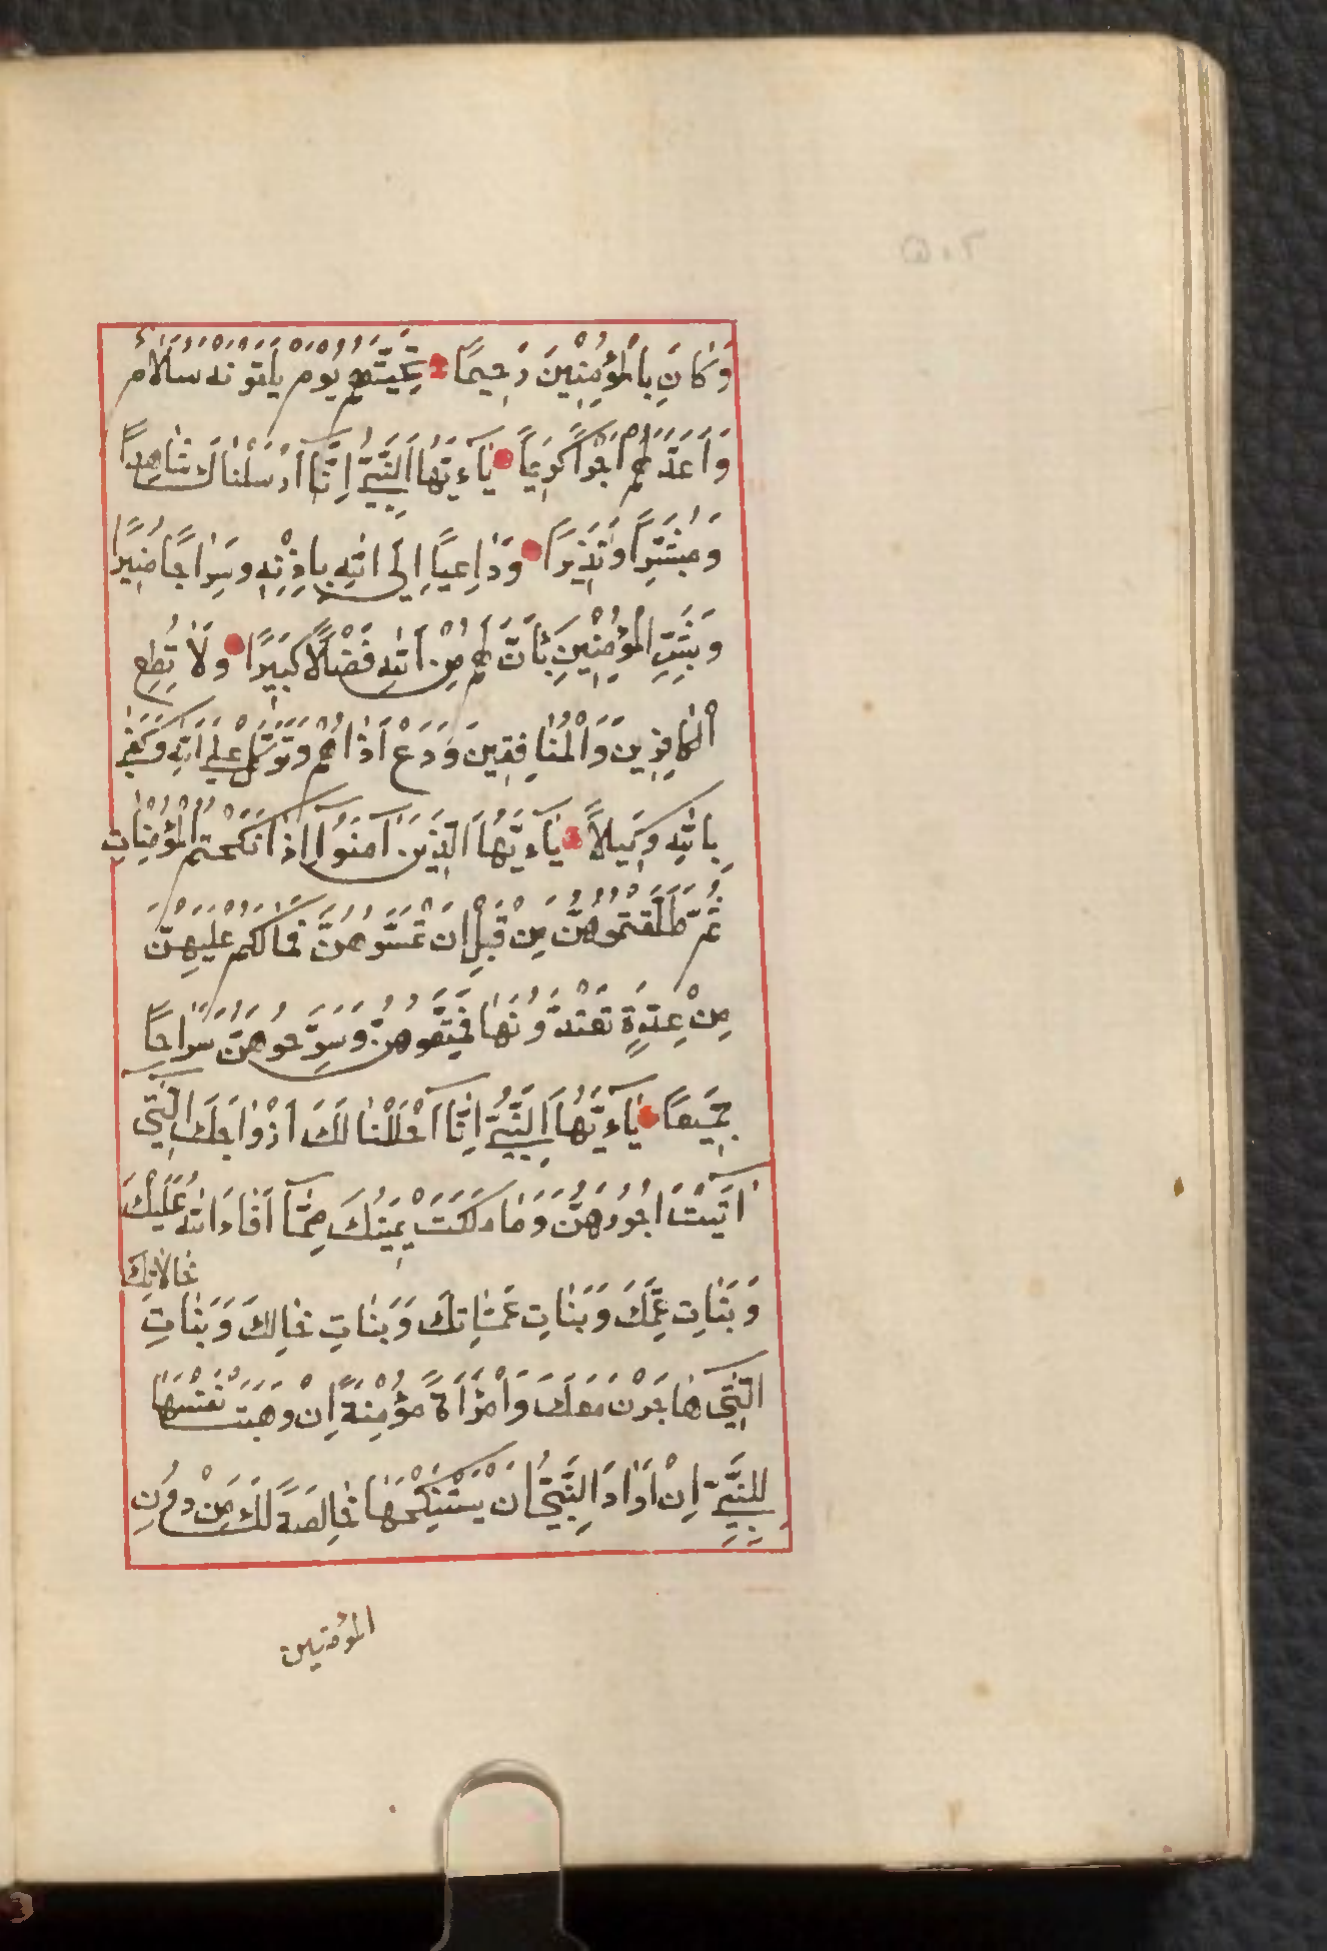 وَكَانَ بِالْمُؤْمِنِينَ رَحِيمًا تَحِيَّتُهُمْ يَوْمَ يَلْقَوْنَهُ سَلَامٌ
وَاَعَدَّ لَهُمْ اَجْرًا كَرِيمًا يَآءَيُّهَا النَّبِيُّ اِنَّا اَرْسَلْنَاكَ شَاهِدًا
وَمُبَشِّرًا وَنَذِيرًا وَدَاعِيًا اِلَى اللّٰهِ بِاِذْنِهِ وَسِرَاجًا مُنِيرًا
وَبَشِّرِ الْمُؤْمِنِينَ بِاَنَّ لَهُمْ مِنَ اللّٰهِ فَضْلًا كَبِيرًا وَلَا تُطِعِ
الْكَافِرِينَ وَالْمُنَافِقِينَ وَدَعْ اَذَاهُمْ وَتَوَكَّلْ عَلَى اللّٰهِ وَكَفَى
بِاللّٰهِ وَكِيلًا يَآءَيُّهَا الَّذِينَ اٰمَنُوا اِذَا نَكَحْتُمُ الْمُؤْمِنَاتِ
ثُمَّ طَلَّقْتُمُوهُنَّ مِنْ قَبْلِ اَنْ تَمَسُّوهُنَّ فَمَا لَكُمْ عَلَيْهِنَّ
مِنْ عِدَّةٍ تَعْتَدُّونَهَا فَمَتِّعُوهُنَّ وَسَرِّحُوهُنَّ سَرَاحًا
جَمِيعًا يَآءَيُّهَا النَّبِيُّ اِنَّا اَحْلَلْنَا لَكَ اَزْوَاجَكَ الّٰتِي
اٰتَيْتَ اُجُورَهُنَّ وَمَا مَلَكَتْ يَمِينُكَ مِمَّا اَفَاءَ اللّٰهُ عَلَيْكَ
خَالَاتِكَ
وَبَنَاتِ عَمِّكَ وَبَنَاتِ عَمَّاتِكَ وَبَنَاتِ خَالِكَ وَبَنَاتِ
الّٰتِي هَاجَرْنَ مَعَكَ وَامْرَاَةً مُؤْمِنَةً اِنْ وَهَبَتْ نَفْسَهَا
لِلنَّبِيِّ اِنْ اَرَادَ النَّبِيُّ اَنْ يَسْتَنْكِحَهَا خَالِصَةً لَكَ مِنْ دُونِ
المؤمنين